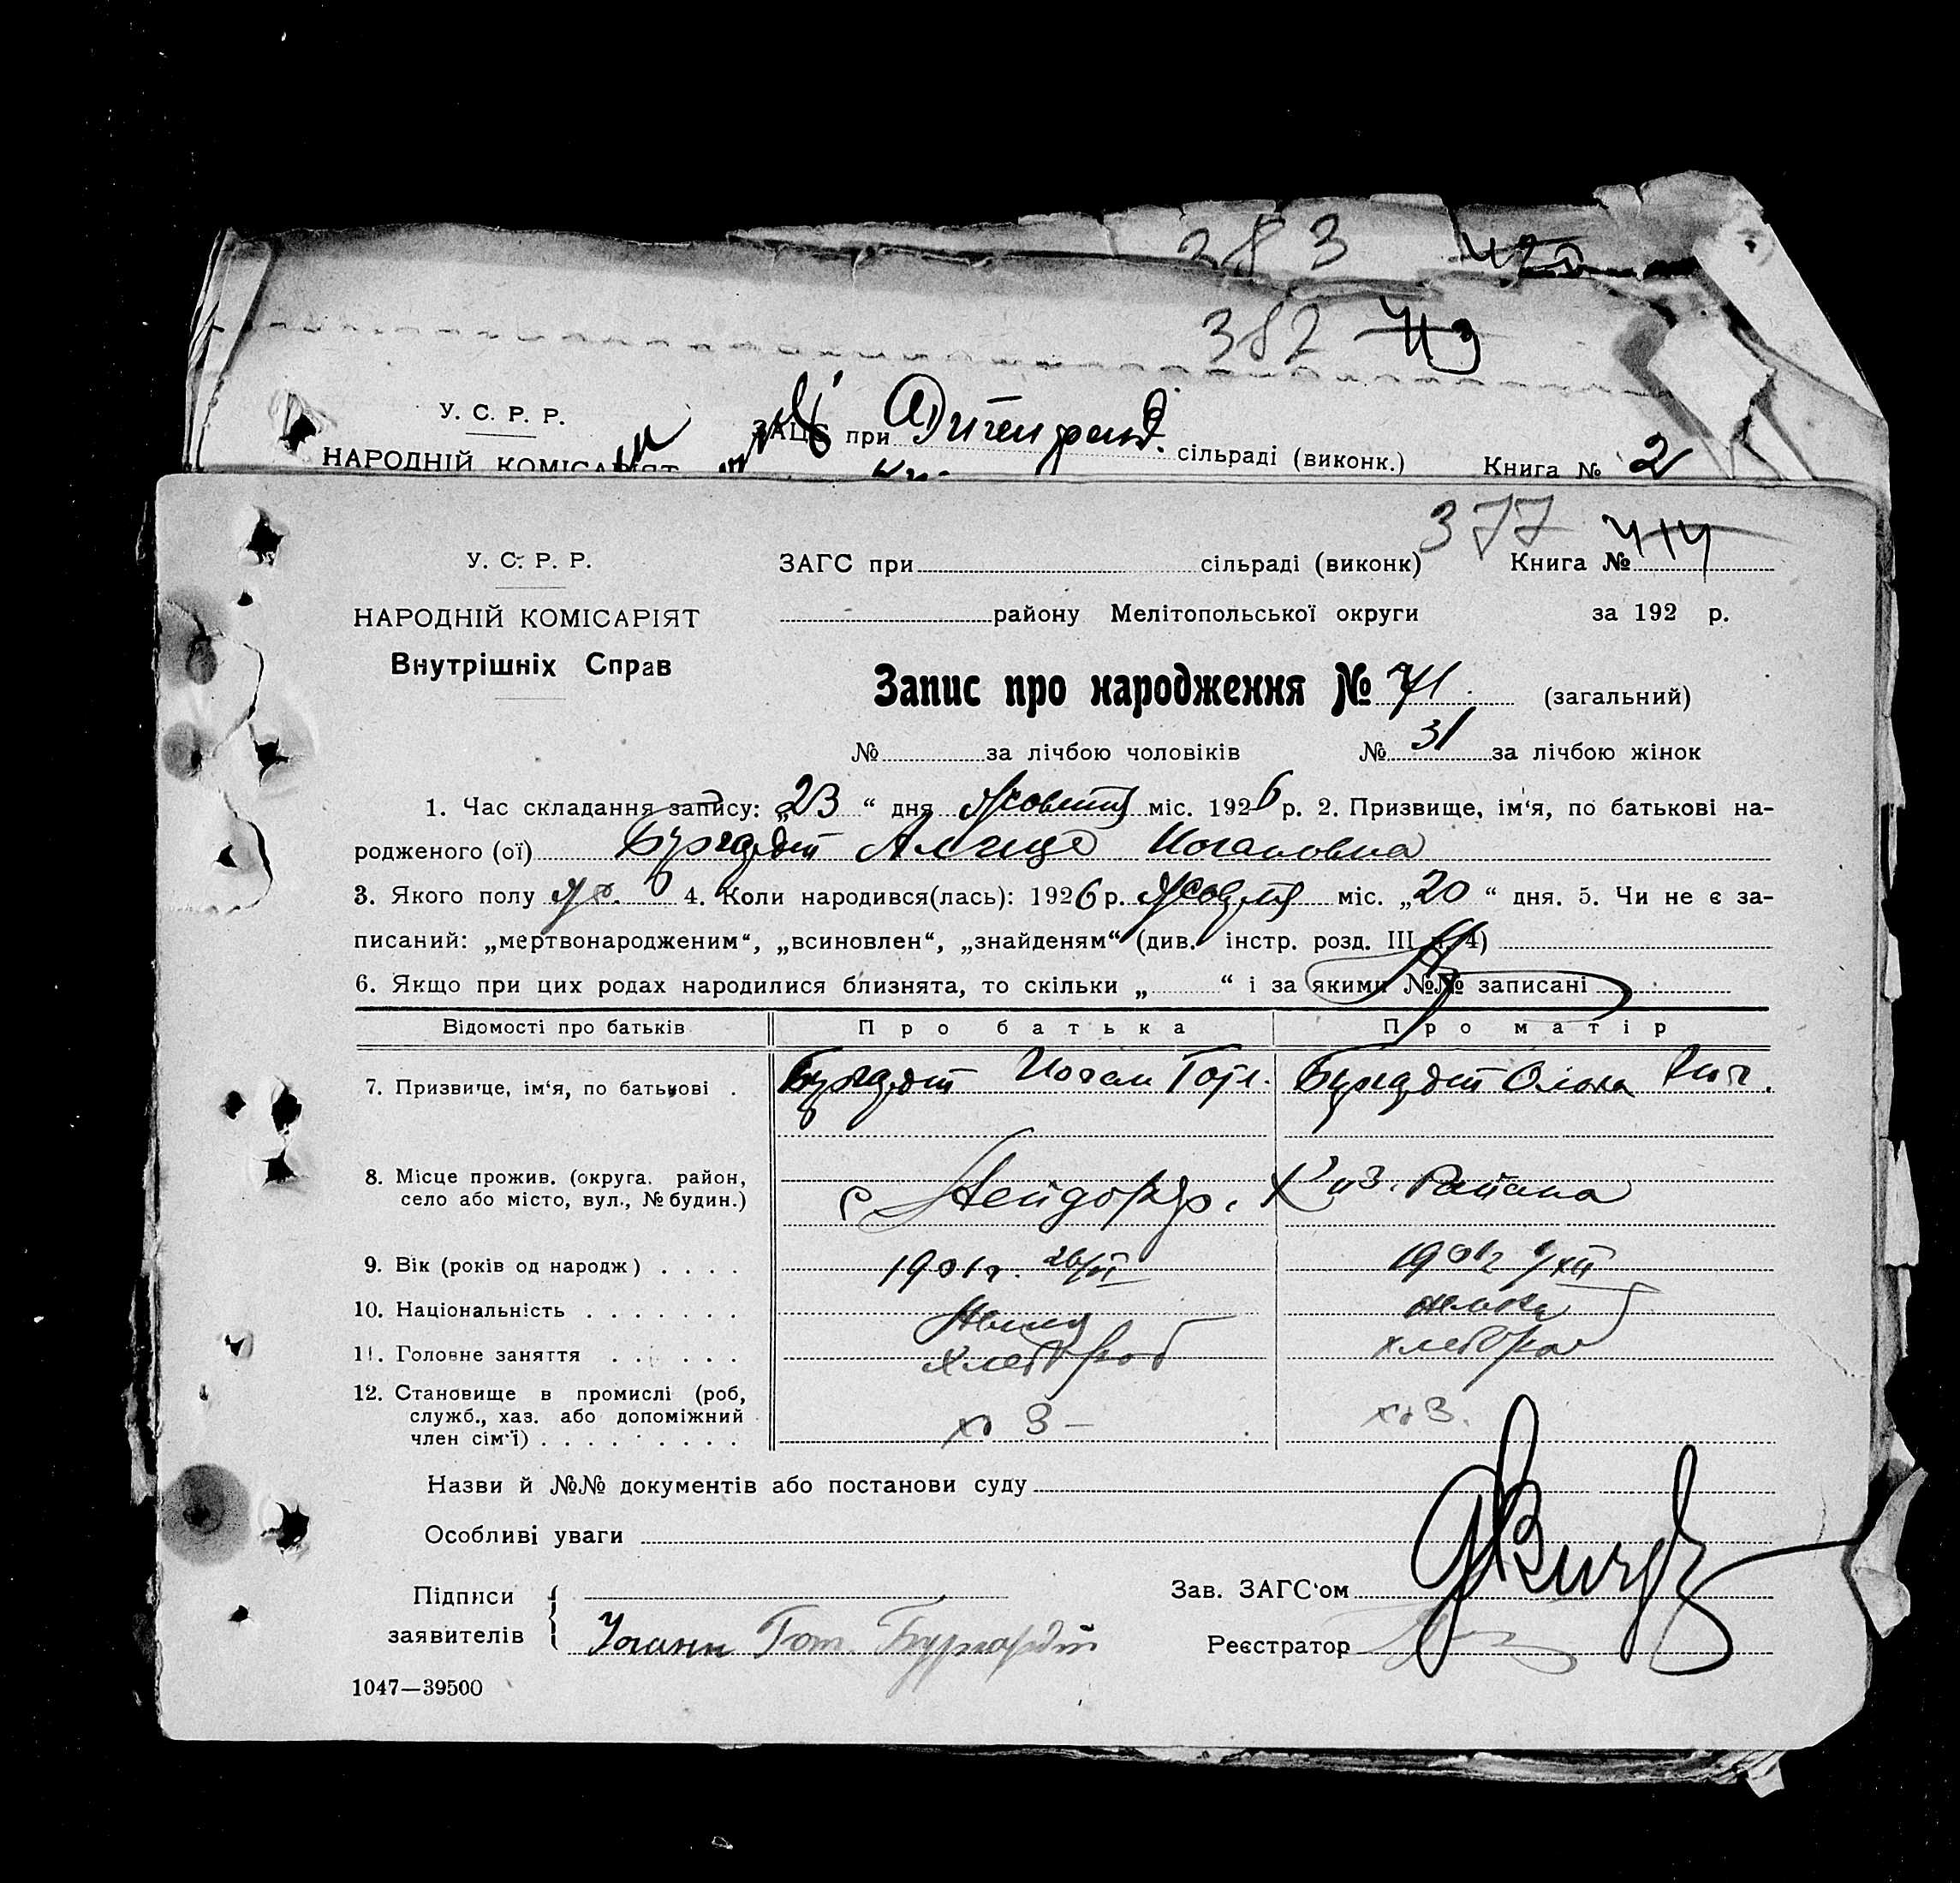 283 420
382 413
У. С. Р. Р.
ЗАЦС при сільраді (виконк.) Книга № 2
НАРОДНІЙ КОМІСАРІЯТ
377 414
У. С. Р. Р. ЗАГС при сільраді (виконк) Книга №
НАРОДНІЙ КОМІСАРІЯТ району Мелітопольської округи за 192 р.
Внутрішніх Справ
Запис про народження № 71. (загальний)
№ за лічбою чоловіків № 31 за лічбою жінок
1. Час складання запису: „23“ дня Жовтня міс. 1926 р. 2. Призвище, ім‘я, по батькові на-
родженого (ої) Бургардт Иогановна
3. Якого полу ж. 4. Коли народився(лась): 1926 р. Жовтня міс. „20“ дня. 5. Чи не є за-
писаний: „мертвонародженим“, „всиновлен“, „знайденям“ (див. інстр. розд. III п. 4)
6. Якщо при цих родах народилися близнята, то скільки „ “ і за якими №№ записані
Відомості про батьків Про батька Про матір
7. Призвище, ім‘я, по батькові . Бургардт Иоган Готл. Бургардт
8. Місце прожив. (округа. район, село або місто, вул., № будин.) с Нейдорф. района
9. Вік (років од народж) . . . . 1901 г. 1901 г
10. Національність . . . . . . . немка
11. Головне заняття . . . . . . хлебороб хлебороб
12. Становище в промислі (роб, служб., хаз. або допоміжний член сім‘ї) . . . . . . . . .
Назви й №№ документів або постанови суду
Особливі уваги
Підписи заявителів Иоганн Гот. Бургардт
Зав. ЗАГС‘ом
Реєстратор
1047—39500